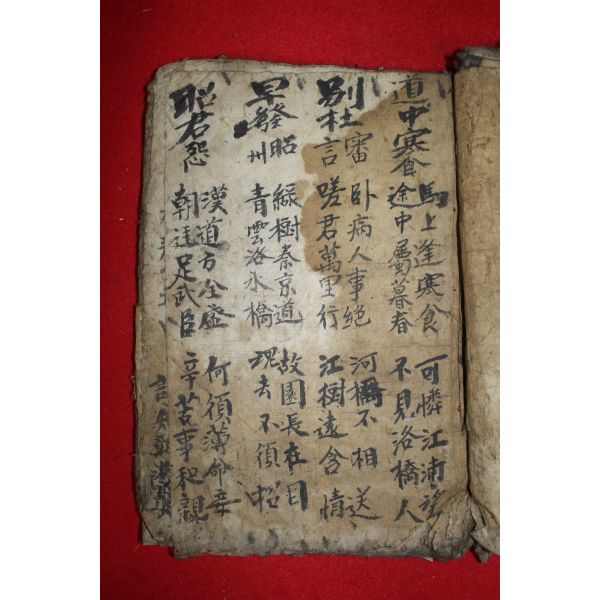 道中寒食
馬上逢寒食 可憐江浦望
途中屬暮春 不見洛橋人
別杜審言
卧病人事絶 河橋不相送
嗟君萬里行 江樹遠含情
早發昭州
綠樹秦京道 故園長在目
青雲洛水橋 魂去不須招
昭君怨
漢道方全盛 何須薄命妾
朝廷足武臣 辛苦事和親